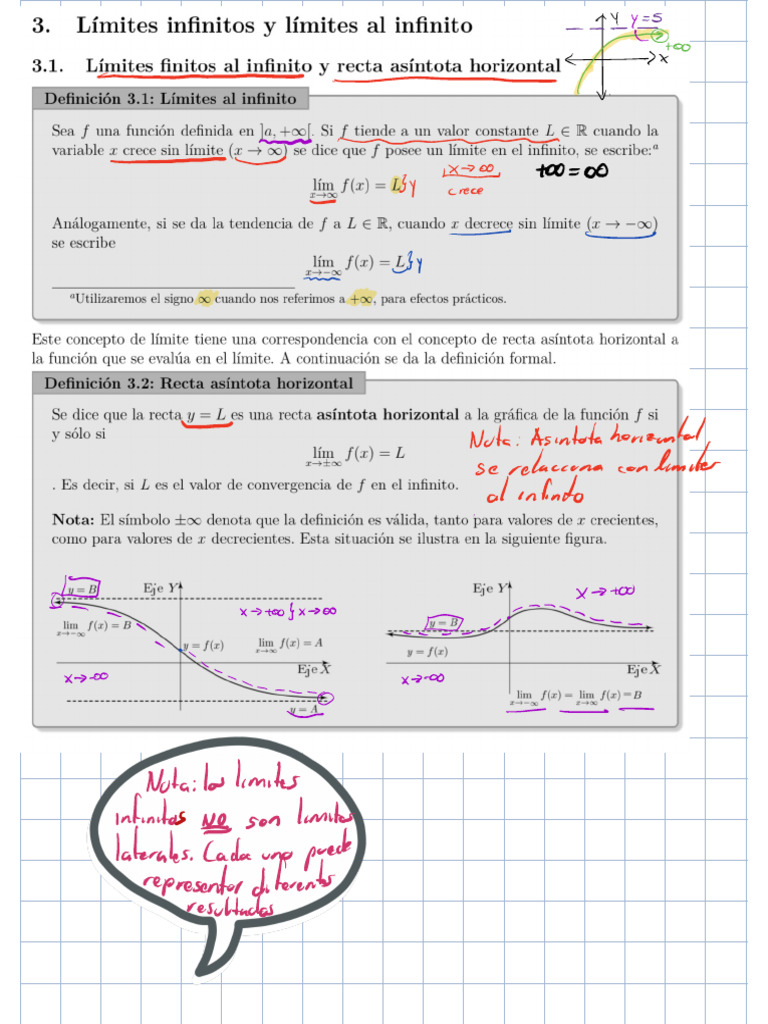 3. Límites infinitos y límites al infinito
y y=5
+∞
x
3.1. Límites finitos al infinito y recta asíntota horizontal
Definición 3.1: Límites al infinito
Sea f una función definida en ]a, +∞[. Si f tiende a un valor constante L ∈ ℝ cuando la
variable x crece sin límite (x → ∞) se dice que f posee un límite en el infinito, se escribe:ᵃ
lím f(x) = L } y
x→∞
x→∞
crece
+∞ = ∞
Análogamente, si se da la tendencia de f a L ∈ ℝ, cuando x decrece sin límite (x → −∞)
se escribe
lím f(x) = L } y
x→−∞
ᵃUtilizaremos el signo ∞ cuando nos referimos a +∞, para efectos prácticos.
Este concepto de límite tiene una correspondencia con el concepto de recta asíntota horizontal a
la función que se evalúa en el límite. A continuación se da la definición formal.
Definición 3.2: Recta asíntota horizontal
Se dice que la recta y = L es una recta asíntota horizontal a la gráfica de la función f si
y sólo si
lím f(x) = L
x→±∞
Nota: Asíntota horizontal
se relacciona con limites
al infinito
. Es decir, si L es el valor de convergencia de f en el infinito.
Nota: El símbolo ±∞ denota que la definición es válida, tanto para valores de x crecientes,
como para valores de x decrecientes. Esta situación se ilustra en la siguiente figura.
y = B
Eje Y
x→+∞ } x→∞
lím f(x) = B
x→−∞
y = f(x)
lím f(x) = A
x→∞
Eje X
x→-∞
y = A
Eje Y
x→+∞
y = B
y = f(x)
Eje X
x→-∞
lím f(x) = lím f(x) = B
x→−∞ x→∞
Nota: los limites
infinitos NO son limites
laterales. Cada uno puede
representar diferentes
resultados